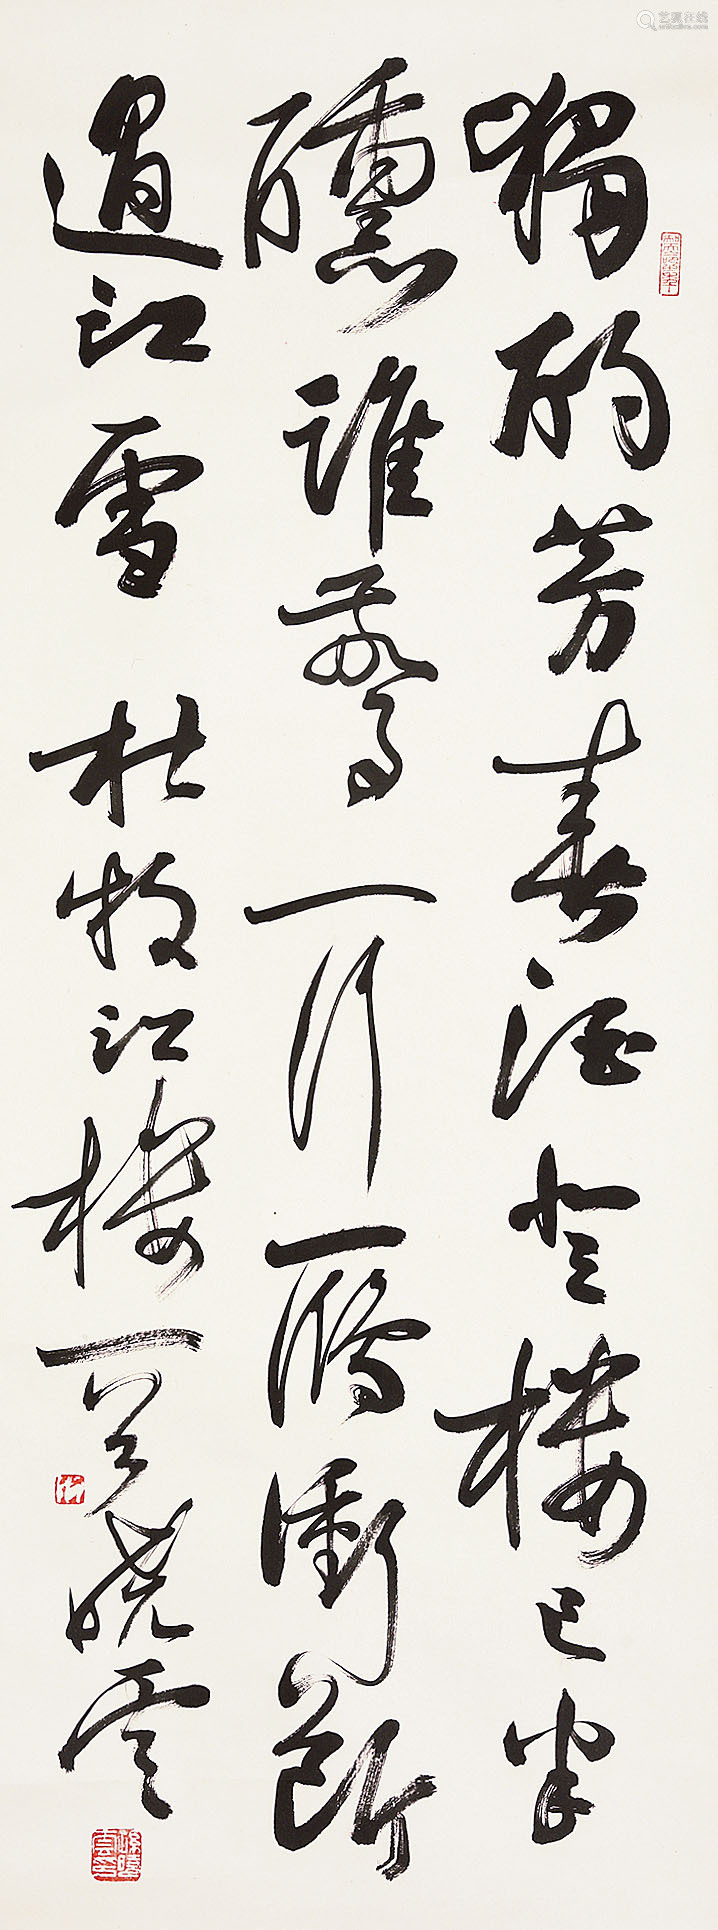 獨酌芳春酒登樓已半
醺誰驚一行鴈衝斷
過江雪 杜牧江樓一首曉雲
艺狐在线